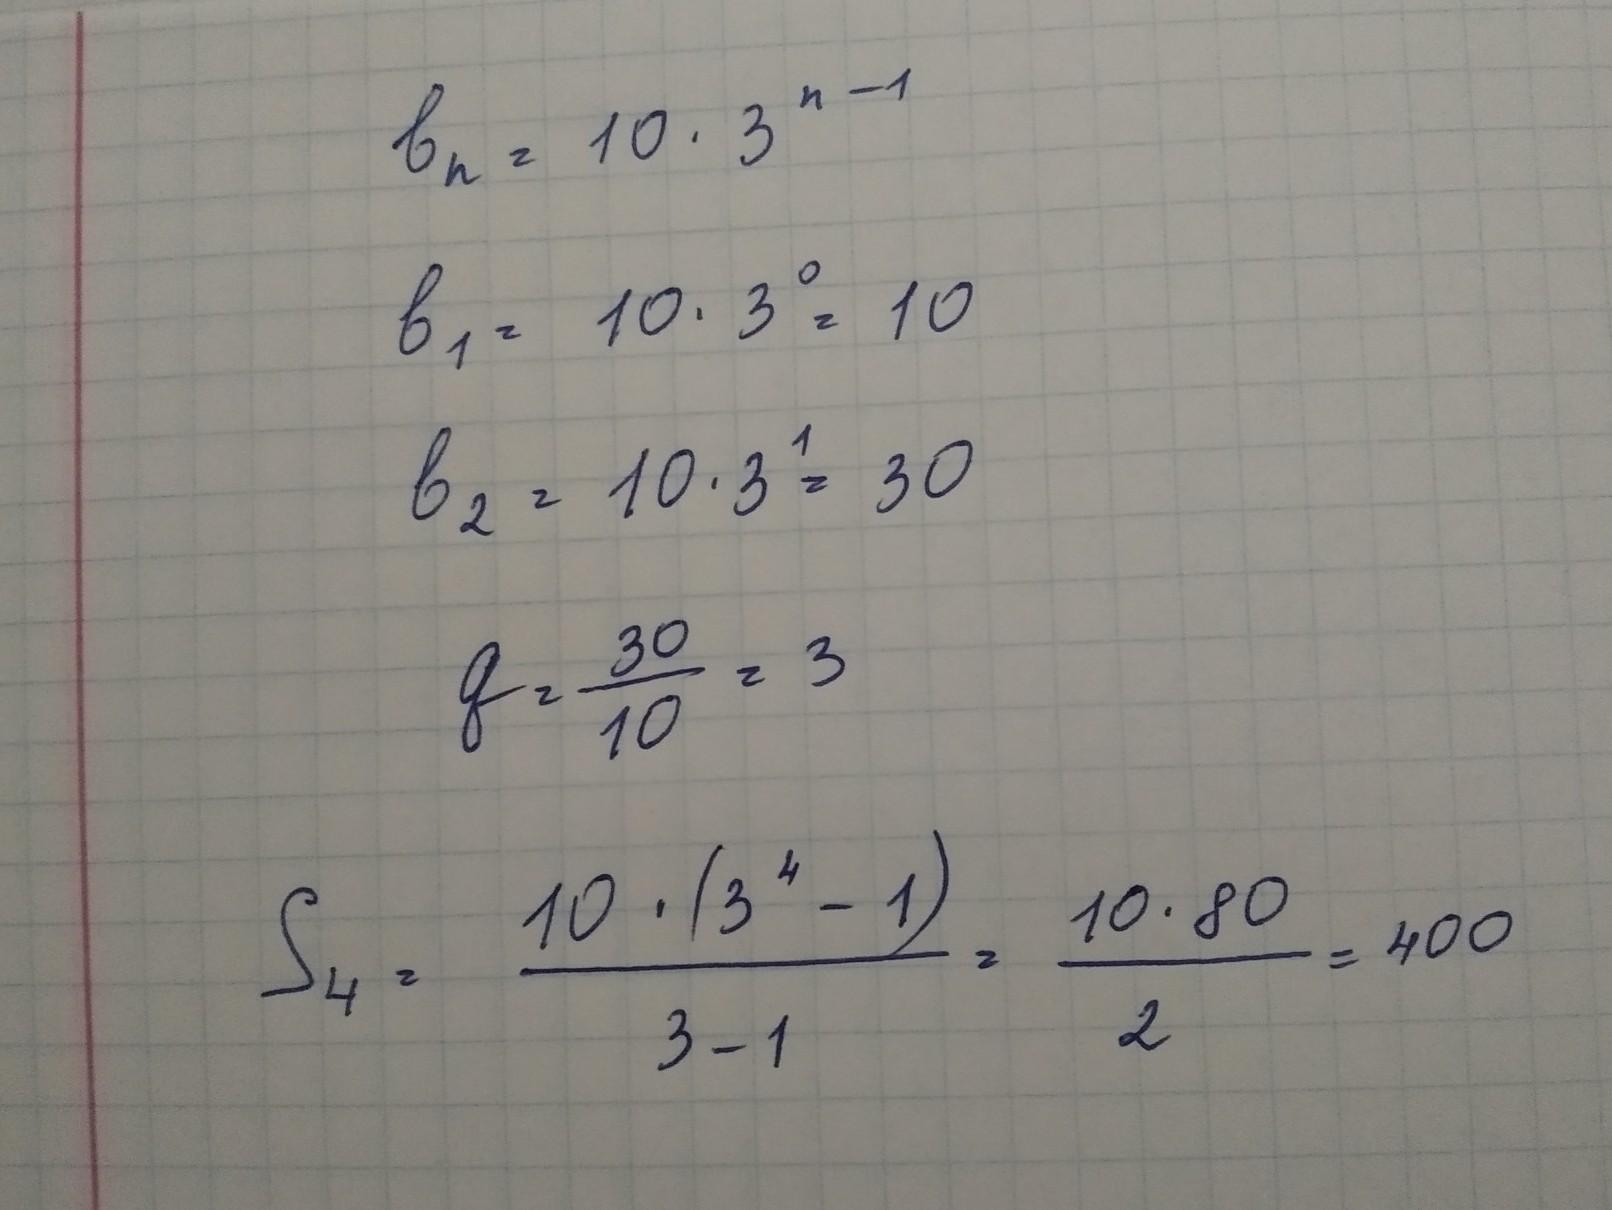 bₙ = 10 · 3ⁿ⁻¹
b₁ = 10 · 3⁰ = 10
b₂ = 10 · 3¹ = 30
q = 30/10 = 3
S₄ = 10 · (3⁴ − 1)/3 − 1 = 10 · 80/2 = 400